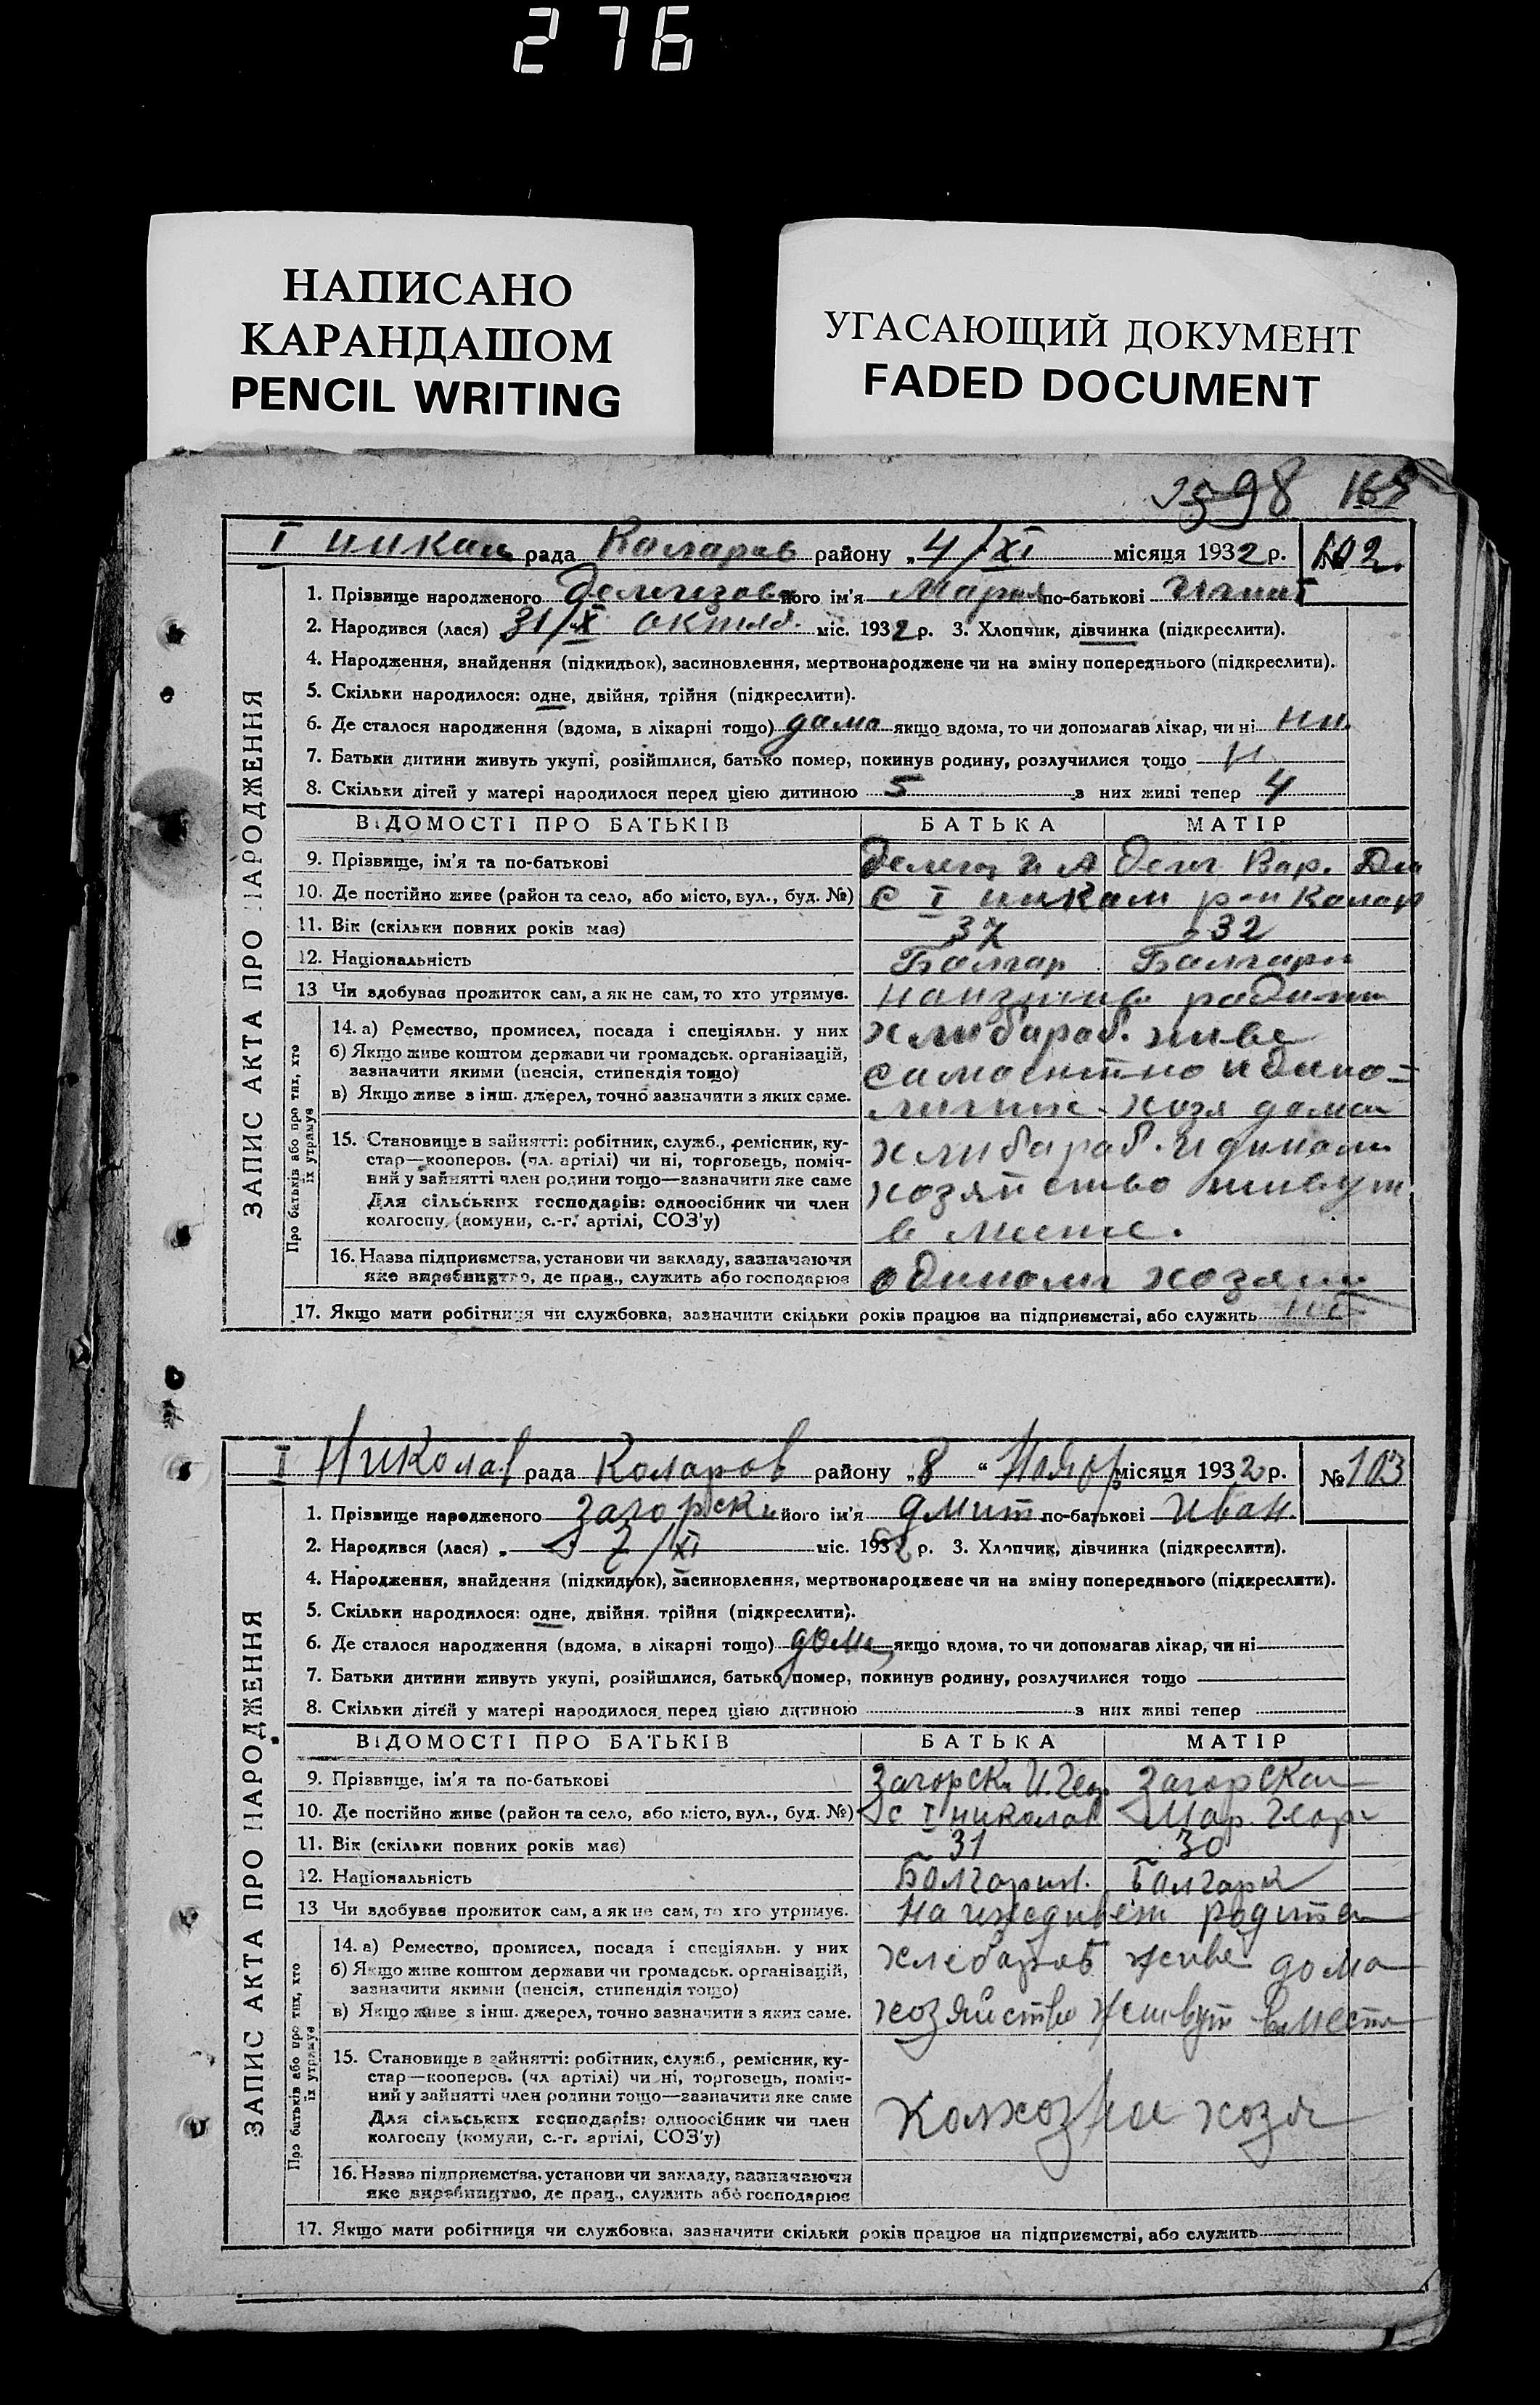 276
НАПИСАНО
КАРАНДАШОМ
PENCIL WRITING
УГАСАЮЩИЙ ДОКУМЕНТ
FADED DOCUMENT
98
ЗАПИС АКТА ПРО НАРОДЖЕННЯ
I рада Коларов району „4/XI місяця 1932 р. 102.
1. Прізвище народженого його ім'я Мария по-батькові
2. Народився (лася) 31/X октяб. міс. 1932 р. 3. Хлопчик, дівчинка (підкреслити).
4. Народження, знайдення (підкидьок), засиновлення, мертвонароджене чи на зміну попереднього (підкреслити).
5. Скільки народилося: одне, двійня, трійня (підкреслити).
6. Де сталося народження (вдома, в лікарні тощо) дома якщо вдома, то чи допомагав лікар, чи ні
7. Батьки дитини живуть укупі, розійшлися, батько помер, покинув родину, розлучилися тощо
8. Скільки дітей у матері народилося перед цією дитиною 5 з них живі тепер 4
ВІДОМОСТІ ПРО БАТЬКІВ БАТЬКА МАТІР
9. Прізвище, ім'я та по-батькові Вар.
10. Де постійно живе (район та село, або місто, вул., буд. №) с I
11. Вік (скільки повних років має) 37 32
12. Національність Болгар Болгарк
13 Чи здобуває прожиток сам, а як не сам, то хто утримує.
Про батьків або про тих, хто їх утримує
14. а) Ремество, промисел, посада і спеціяльн. у них хлибараб. живе
б) Якщо живе коштом держави чи громадськ. організацій, зазначити якими (пенсія, стипендія тощо)
в) Якщо живе з інш. джерел, точно зазначити з яких саме.
15. Становище в зайнятті: робітник, служб., ремісник, ку- хлибараб.
стар—кооперов. (чл. артілі) чи ні, торговець, поміч-
ний у зайнятті член родини тощо—зазначити яке саме хозяйство живут
Для сільських господарів: одноосібник чи член
колгоспу (комуни, с.-г. артілі, СОЗ'у) в месте.
16. Назва підприємства, установи чи закладу, зазначаючи
яке виробництво, де прац., служить або господарює
17. Якщо мати робітниця чи службовка, зазначити скільки років працює на підприємстві, або служить
ЗАПИС АКТА ПРО НАРОДЖЕННЯ
I Николав рада Коларов району „8 “ Ноябр місяця 1932 р. №103
1. Прізвище народженого Загорски його ім'я Дмит по-батькові Иван.
2. Народився (лася) „ 7/XI міс. 1932 р. 3. Хлопчик, дівчинка (підкреслити).
4. Народження, знайдення (підкидьок), засиновлення, мертвонароджене чи на зміну попереднього (підкреслити).
5. Скільки народилося: одне, двійня, трійня (підкреслити).
6. Де сталося народження (вдома, в лікарні тощо) дома якщо вдома, то чи допомагав лікар, чи ні
7. Батьки дитини живуть укупі, розійшлися, батько помер, покинув родину, розлучилися тощо
8. Скільки дітей у матері народилося перед цією дитиною з них живі тепер
ВІДОМОСТІ ПРО БАТЬКІВ БАТЬКА МАТІР
9. Прізвище, ім'я та по-батькові Загорски И. Геор Загорская
10. Де постійно живе (район та село, або місто, вул., буд. №) с I николав Мар. Геор
11. Вік (скільки повних років має) 31 30
12. Національність Болгарин. Болгарк
13 Чи здобуває прожиток сам, а як не сам, то хто утримує. На иждивен родител
Про батьків або про тих, хто їх утримує
14. а) Ремество, промисел, посада і спеціяльн. у них хлебараб живе дома
б) Якщо живе коштом держави чи громадськ. організацій, зазначити якими (пенсія, стипендія тощо)
в) Якщо живе з інш. джерел, точно зазначити з яких саме. хозяйство живут вместе
15. Становище в зайнятті: робітник, служб., ремісник, ку-
стар—кооперов. (чл артілі) чи ні, торговець, поміч-
ний у зайнятті член родини тощо—зазначити яке саме
Для сільських господарів: одноосібник чи член
колгоспу (комуни, с.-г. артілі, СОЗ'у)
16. Назва підприємства, установи чи закладу, зазначаючи
яке виробництво, де прац., служить або господарює
17. Якщо мати робітниця чи службовка, зазначити скільки років працює на підприємстві, або служить